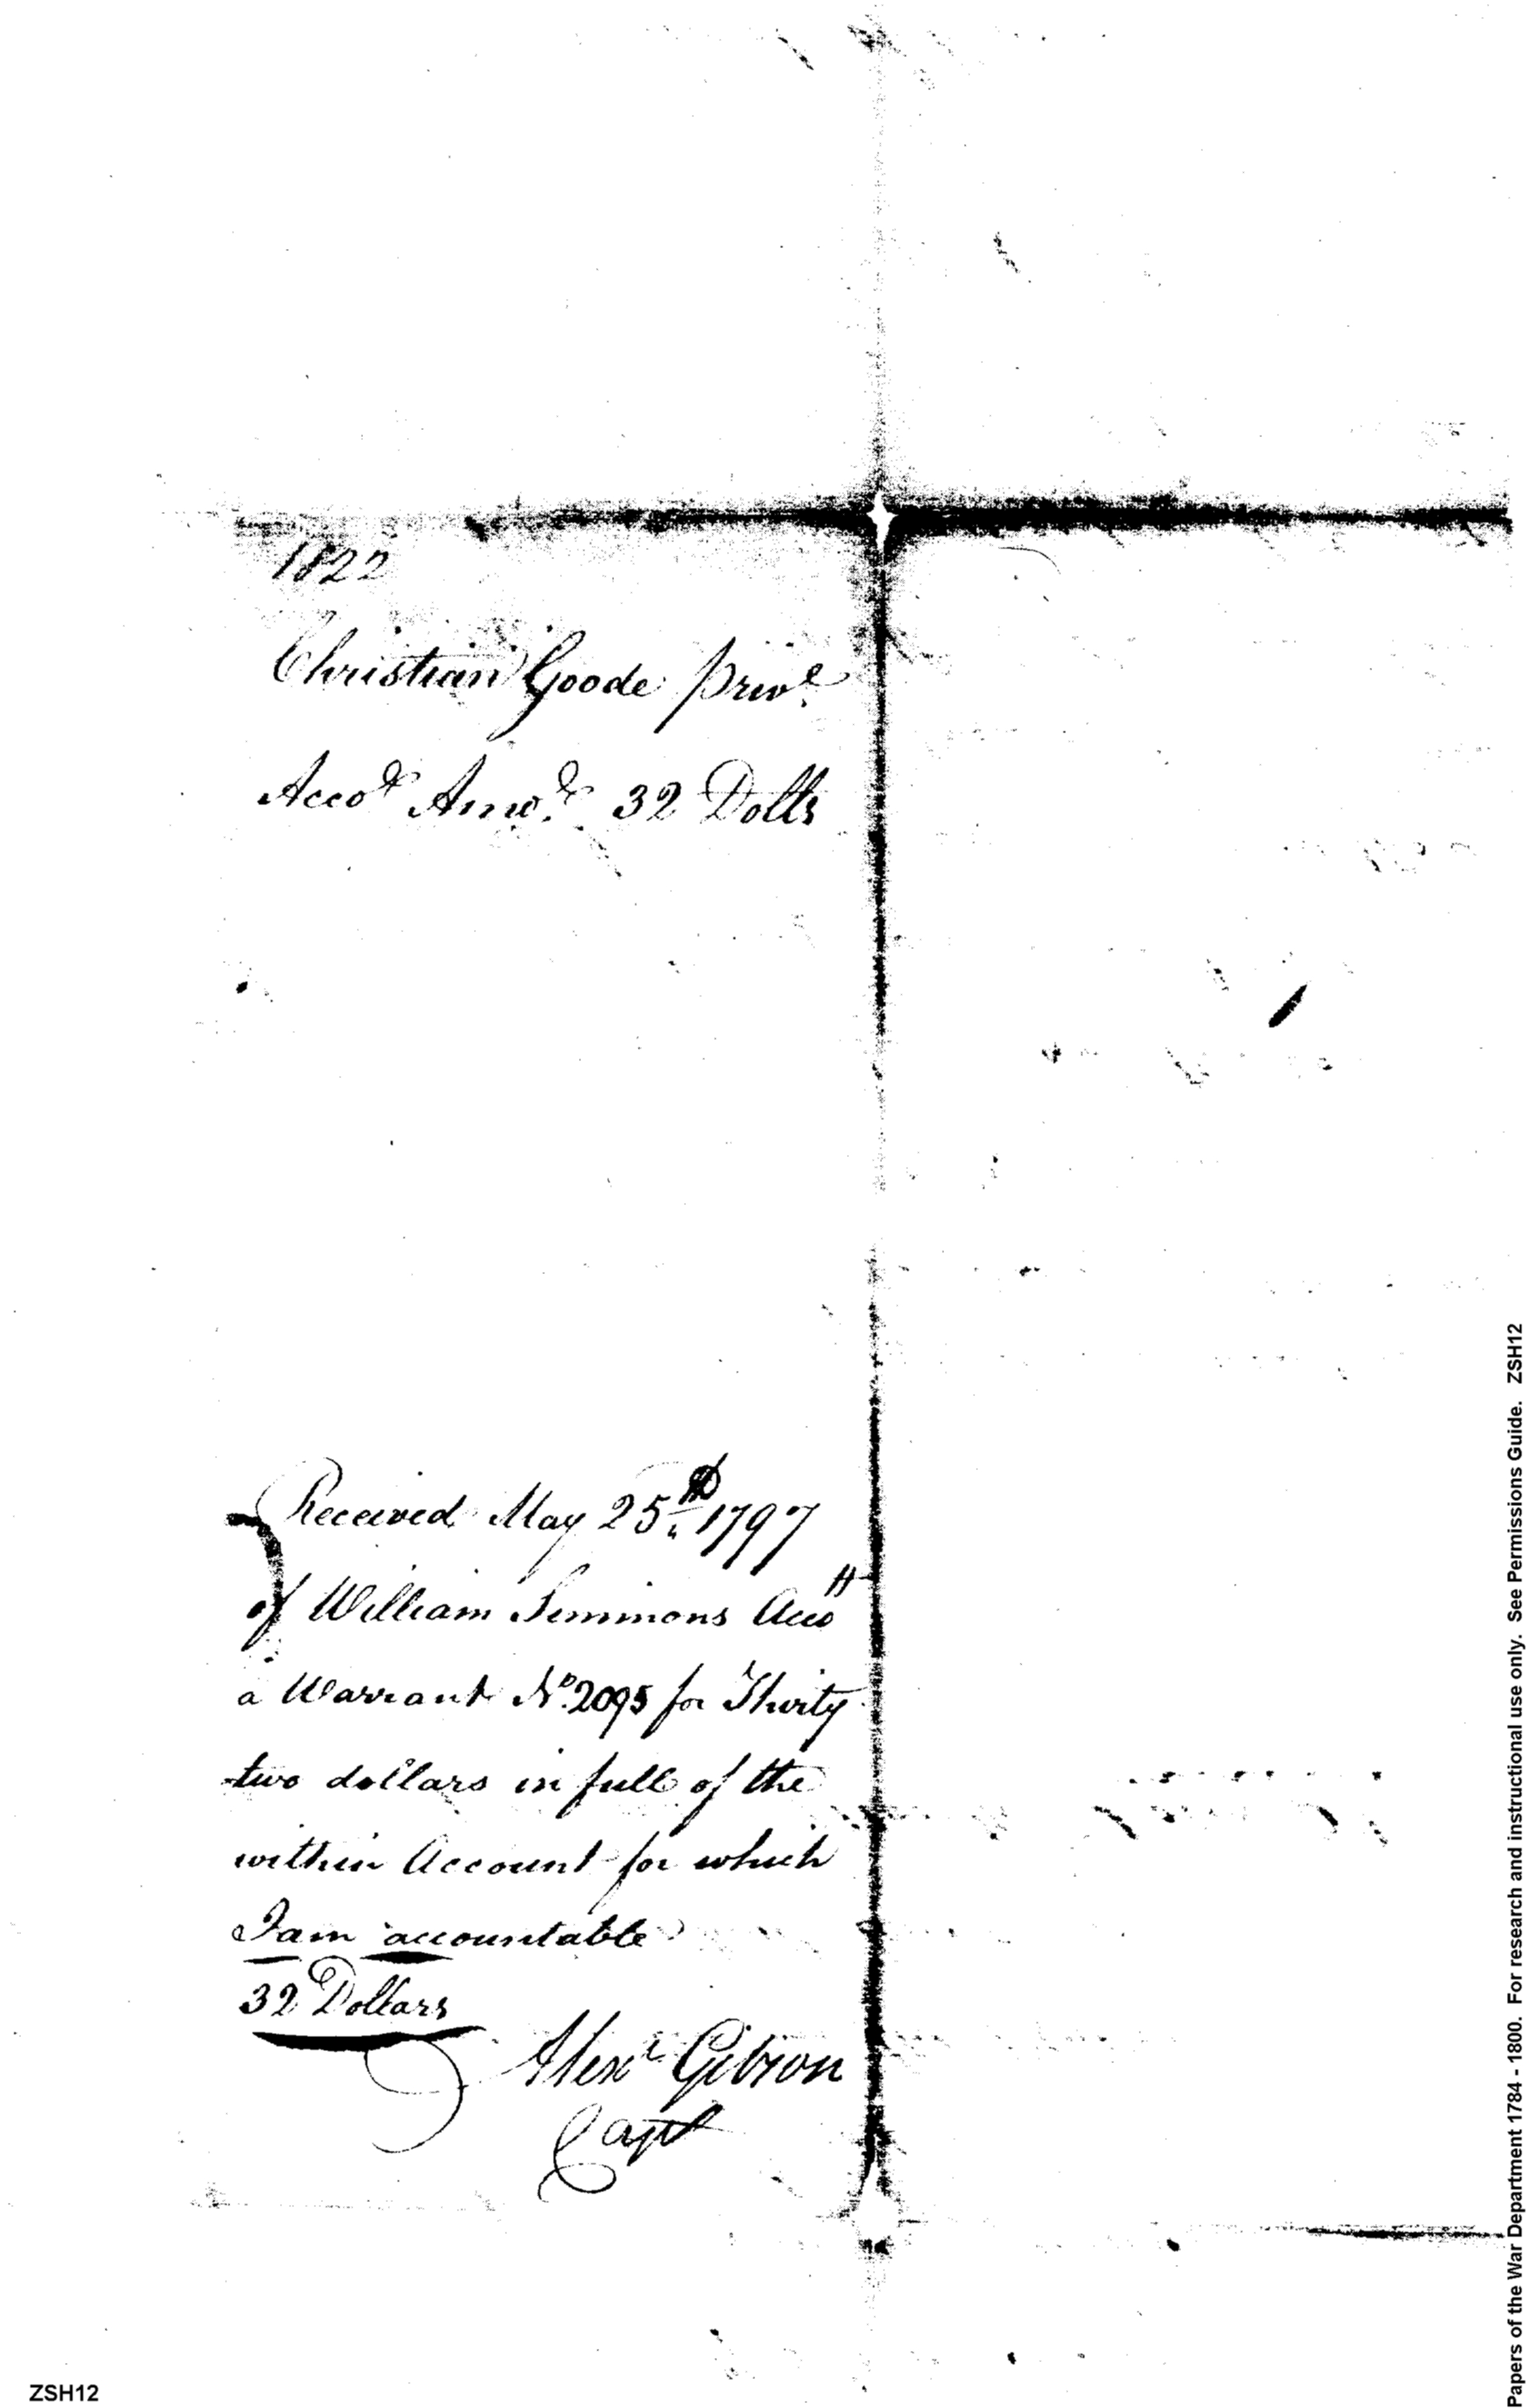 1822
Christian Goode priv.e
Acco.t Amo.t 32 Dolls
Received May 25.th 1797
of William Simmons Acco.tt
a Warrant No. 2095 for Thirty
two dollars in full of the
within Account for which
I am accountable
32 Dollars
Alex.r Gibson
Capt
Papers of the War Department 1784 - 1800. For research and instructional use only. See Permissions Guide. ZSH12
ZSH12